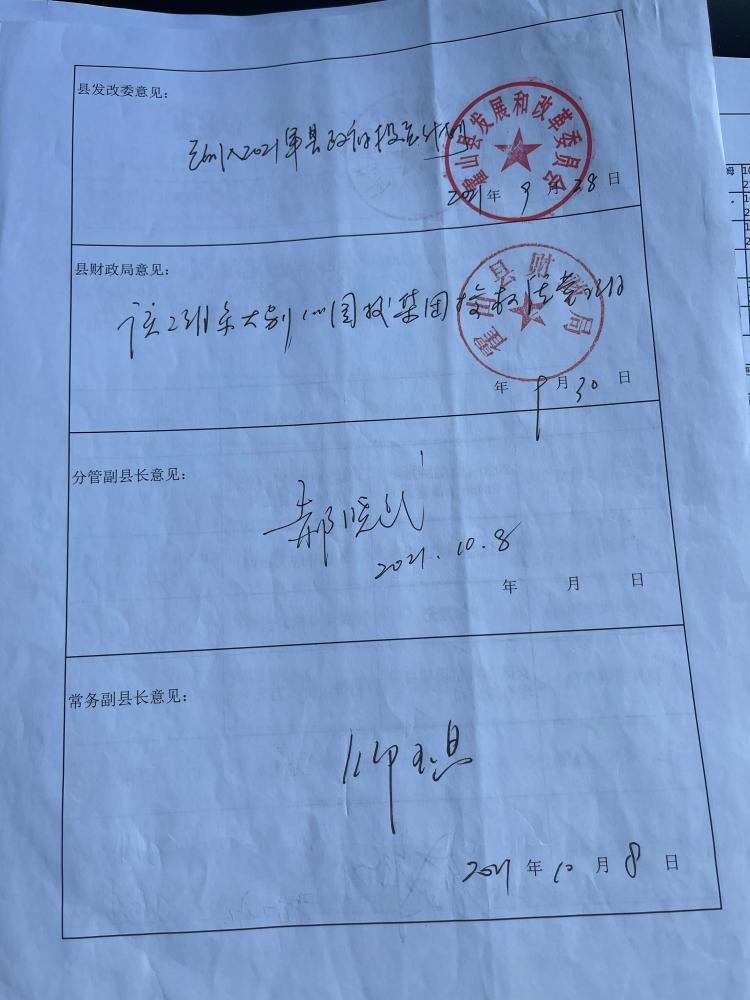 县发改委意见：
已列入2021年县政府投资计划
霍山县发展和改革委员会
2021年9月28日
县财政局意见：
该工程系大别山国投集团
霍山县财政局
年9月30日
分管副县长意见：
郝晓
2021.10.8
年 月 日
常务副县长意见：
2021年10月8日